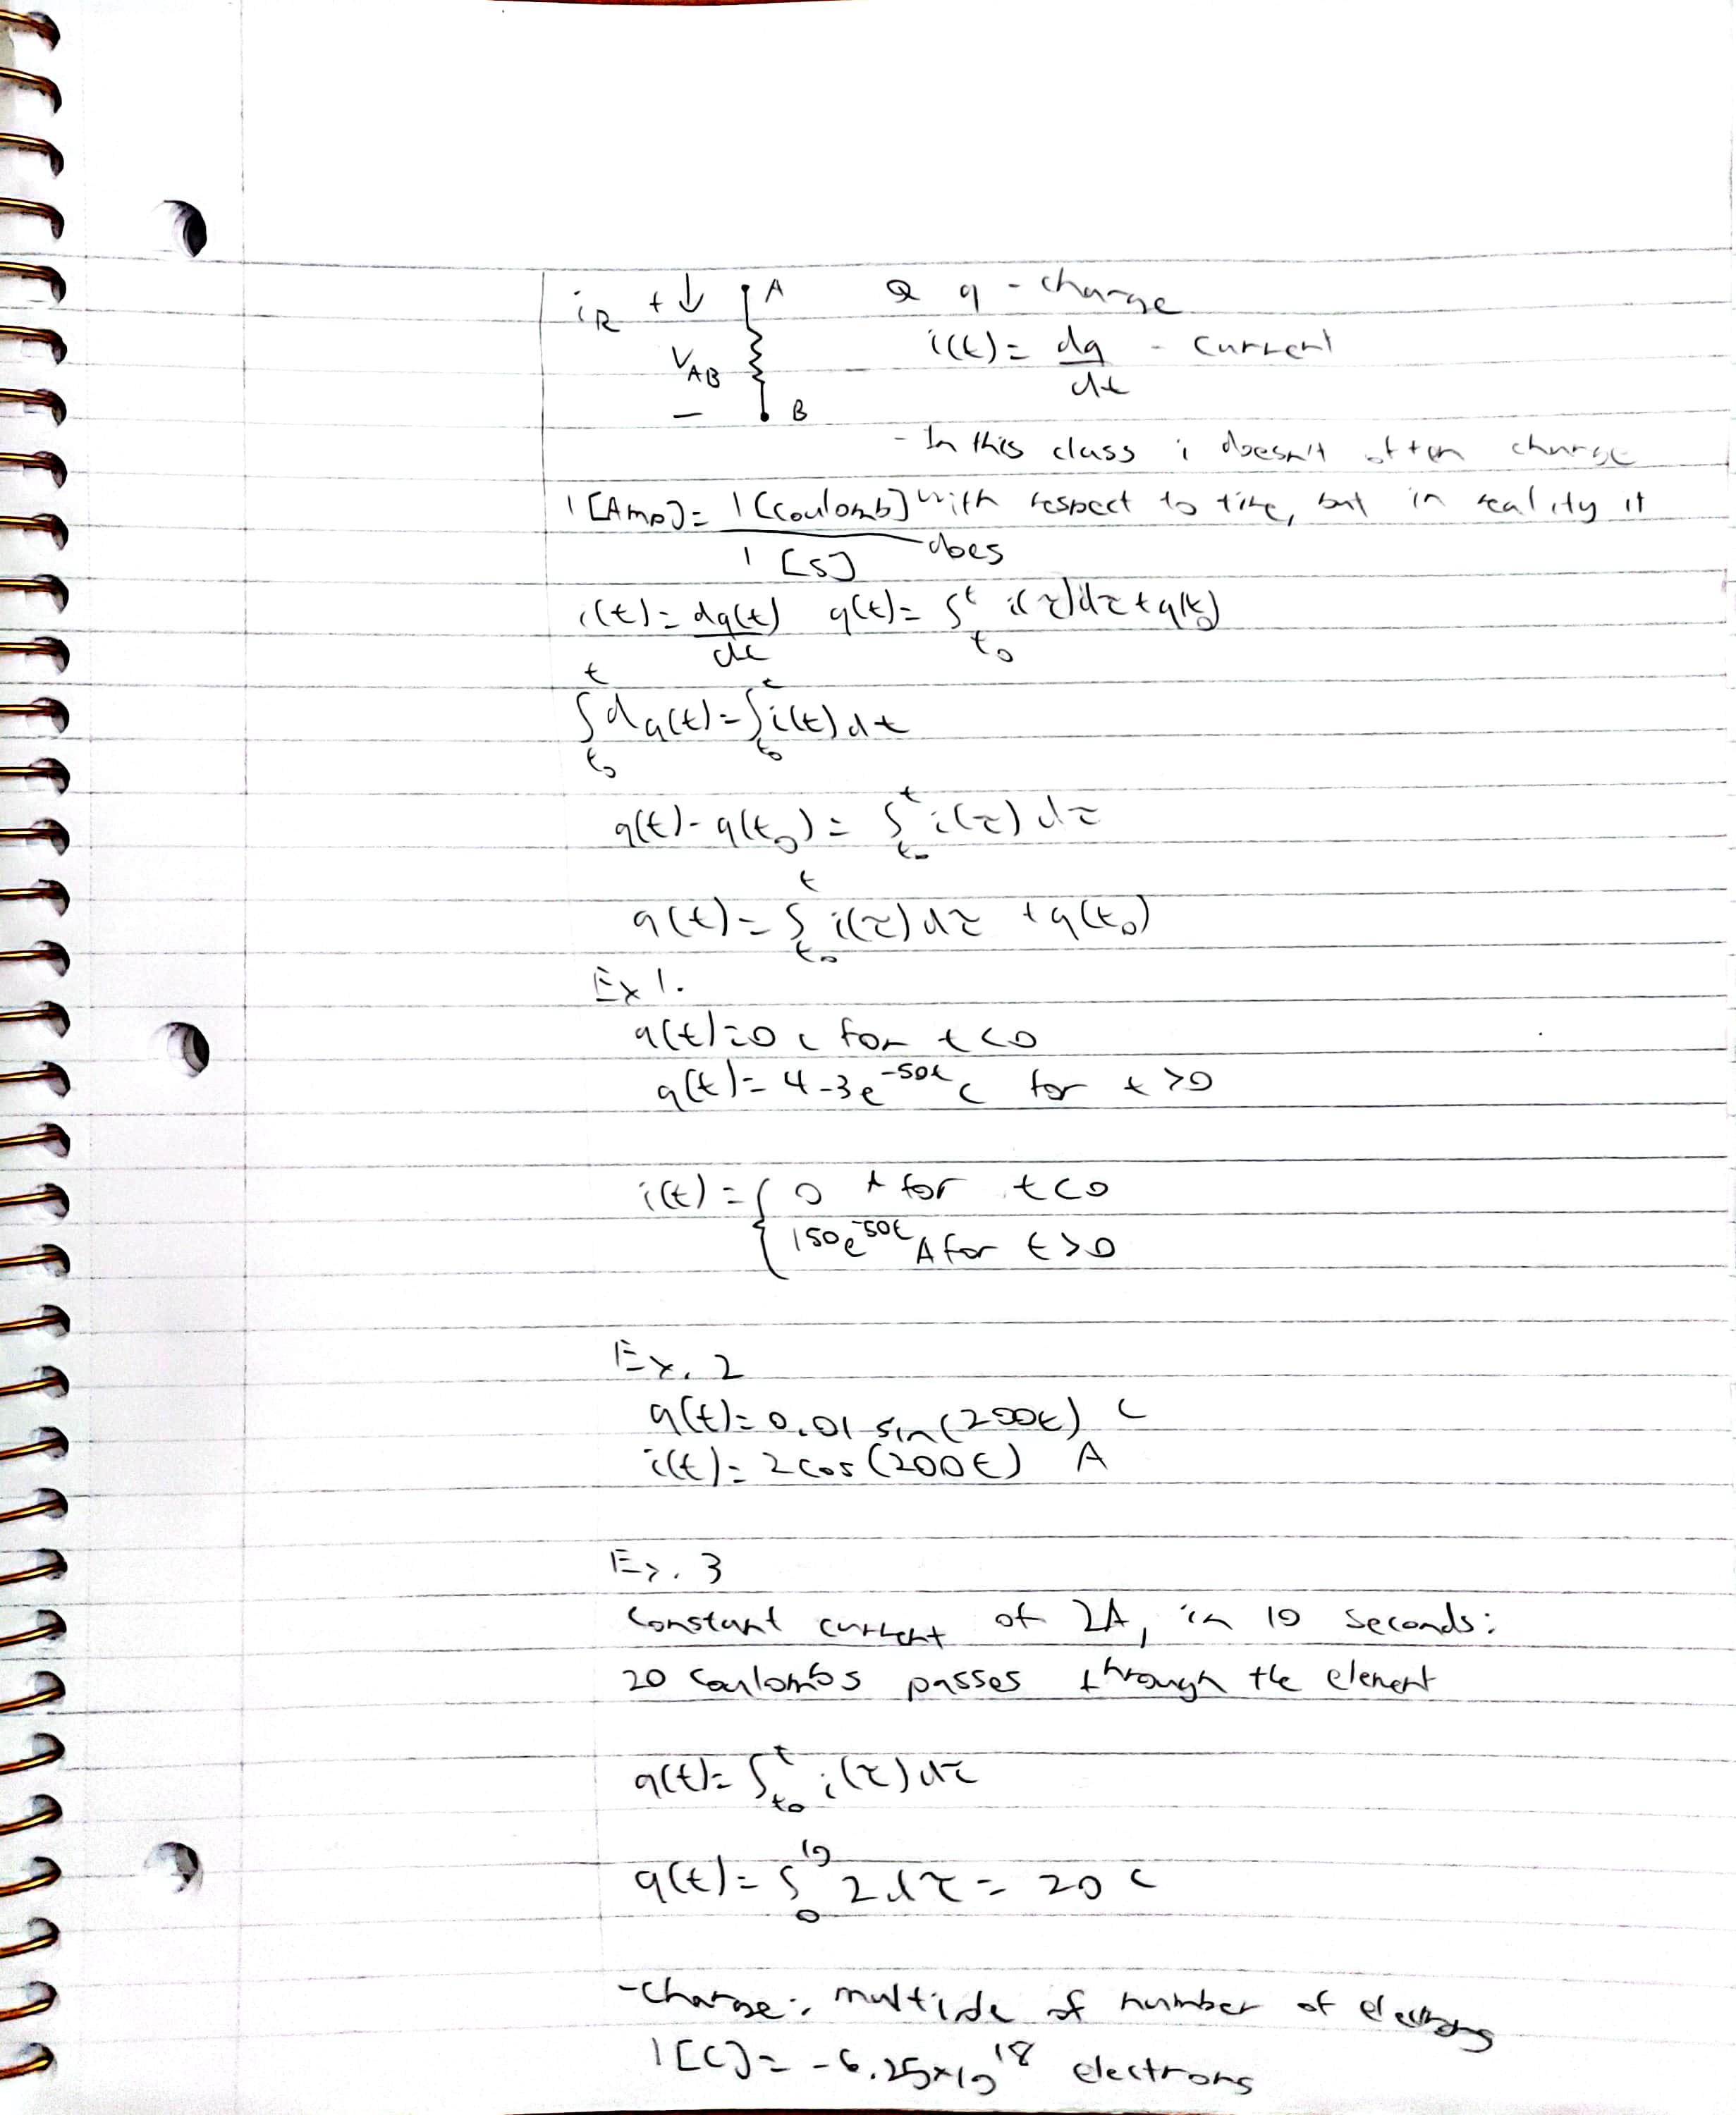 i_R + ↓ A Q q - charge
V_AB i(t) = dq/dt - current
− B
- In this class i doesn't often change
1 [Amp] = 1 [Coulomb] / 1 [s] with respect to time, but in reality it
does
i(t) = dq(t)/dt q(t) = ∫_{t_0}^{t} i(τ)dτ + q(t_0)
∫_{t_0}^{t} dq(t) = ∫_{t_0}^{t} i(t)dt
q(t) - q(t_0) = ∫_{t_0}^{t} i(τ)dτ
q(t) = ∫_{t_0}^{t} i(τ)dτ + q(t_0)
Ex 1.
q(t) = 0 C for t < 0
q(t) = 4 - 3e^{-50t} C for t > 0
i(t) = { 0 A for t < 0
150e^{-50t} A for t > 0
Ex. 2
q(t) = 0.01 sin(200t) C
i(t) = 2cos(200t) A
Ex. 3
Constant current of 2A, in 10 seconds:
20 Coulombs passes through the element
q(t) = ∫_{t_0}^{t} i(τ)dτ
q(t) = ∫_{0}^{10} 2dτ = 20 C
- Charge: multiple of number of electrons
1 [C] = -6.25×10^{18} electrons